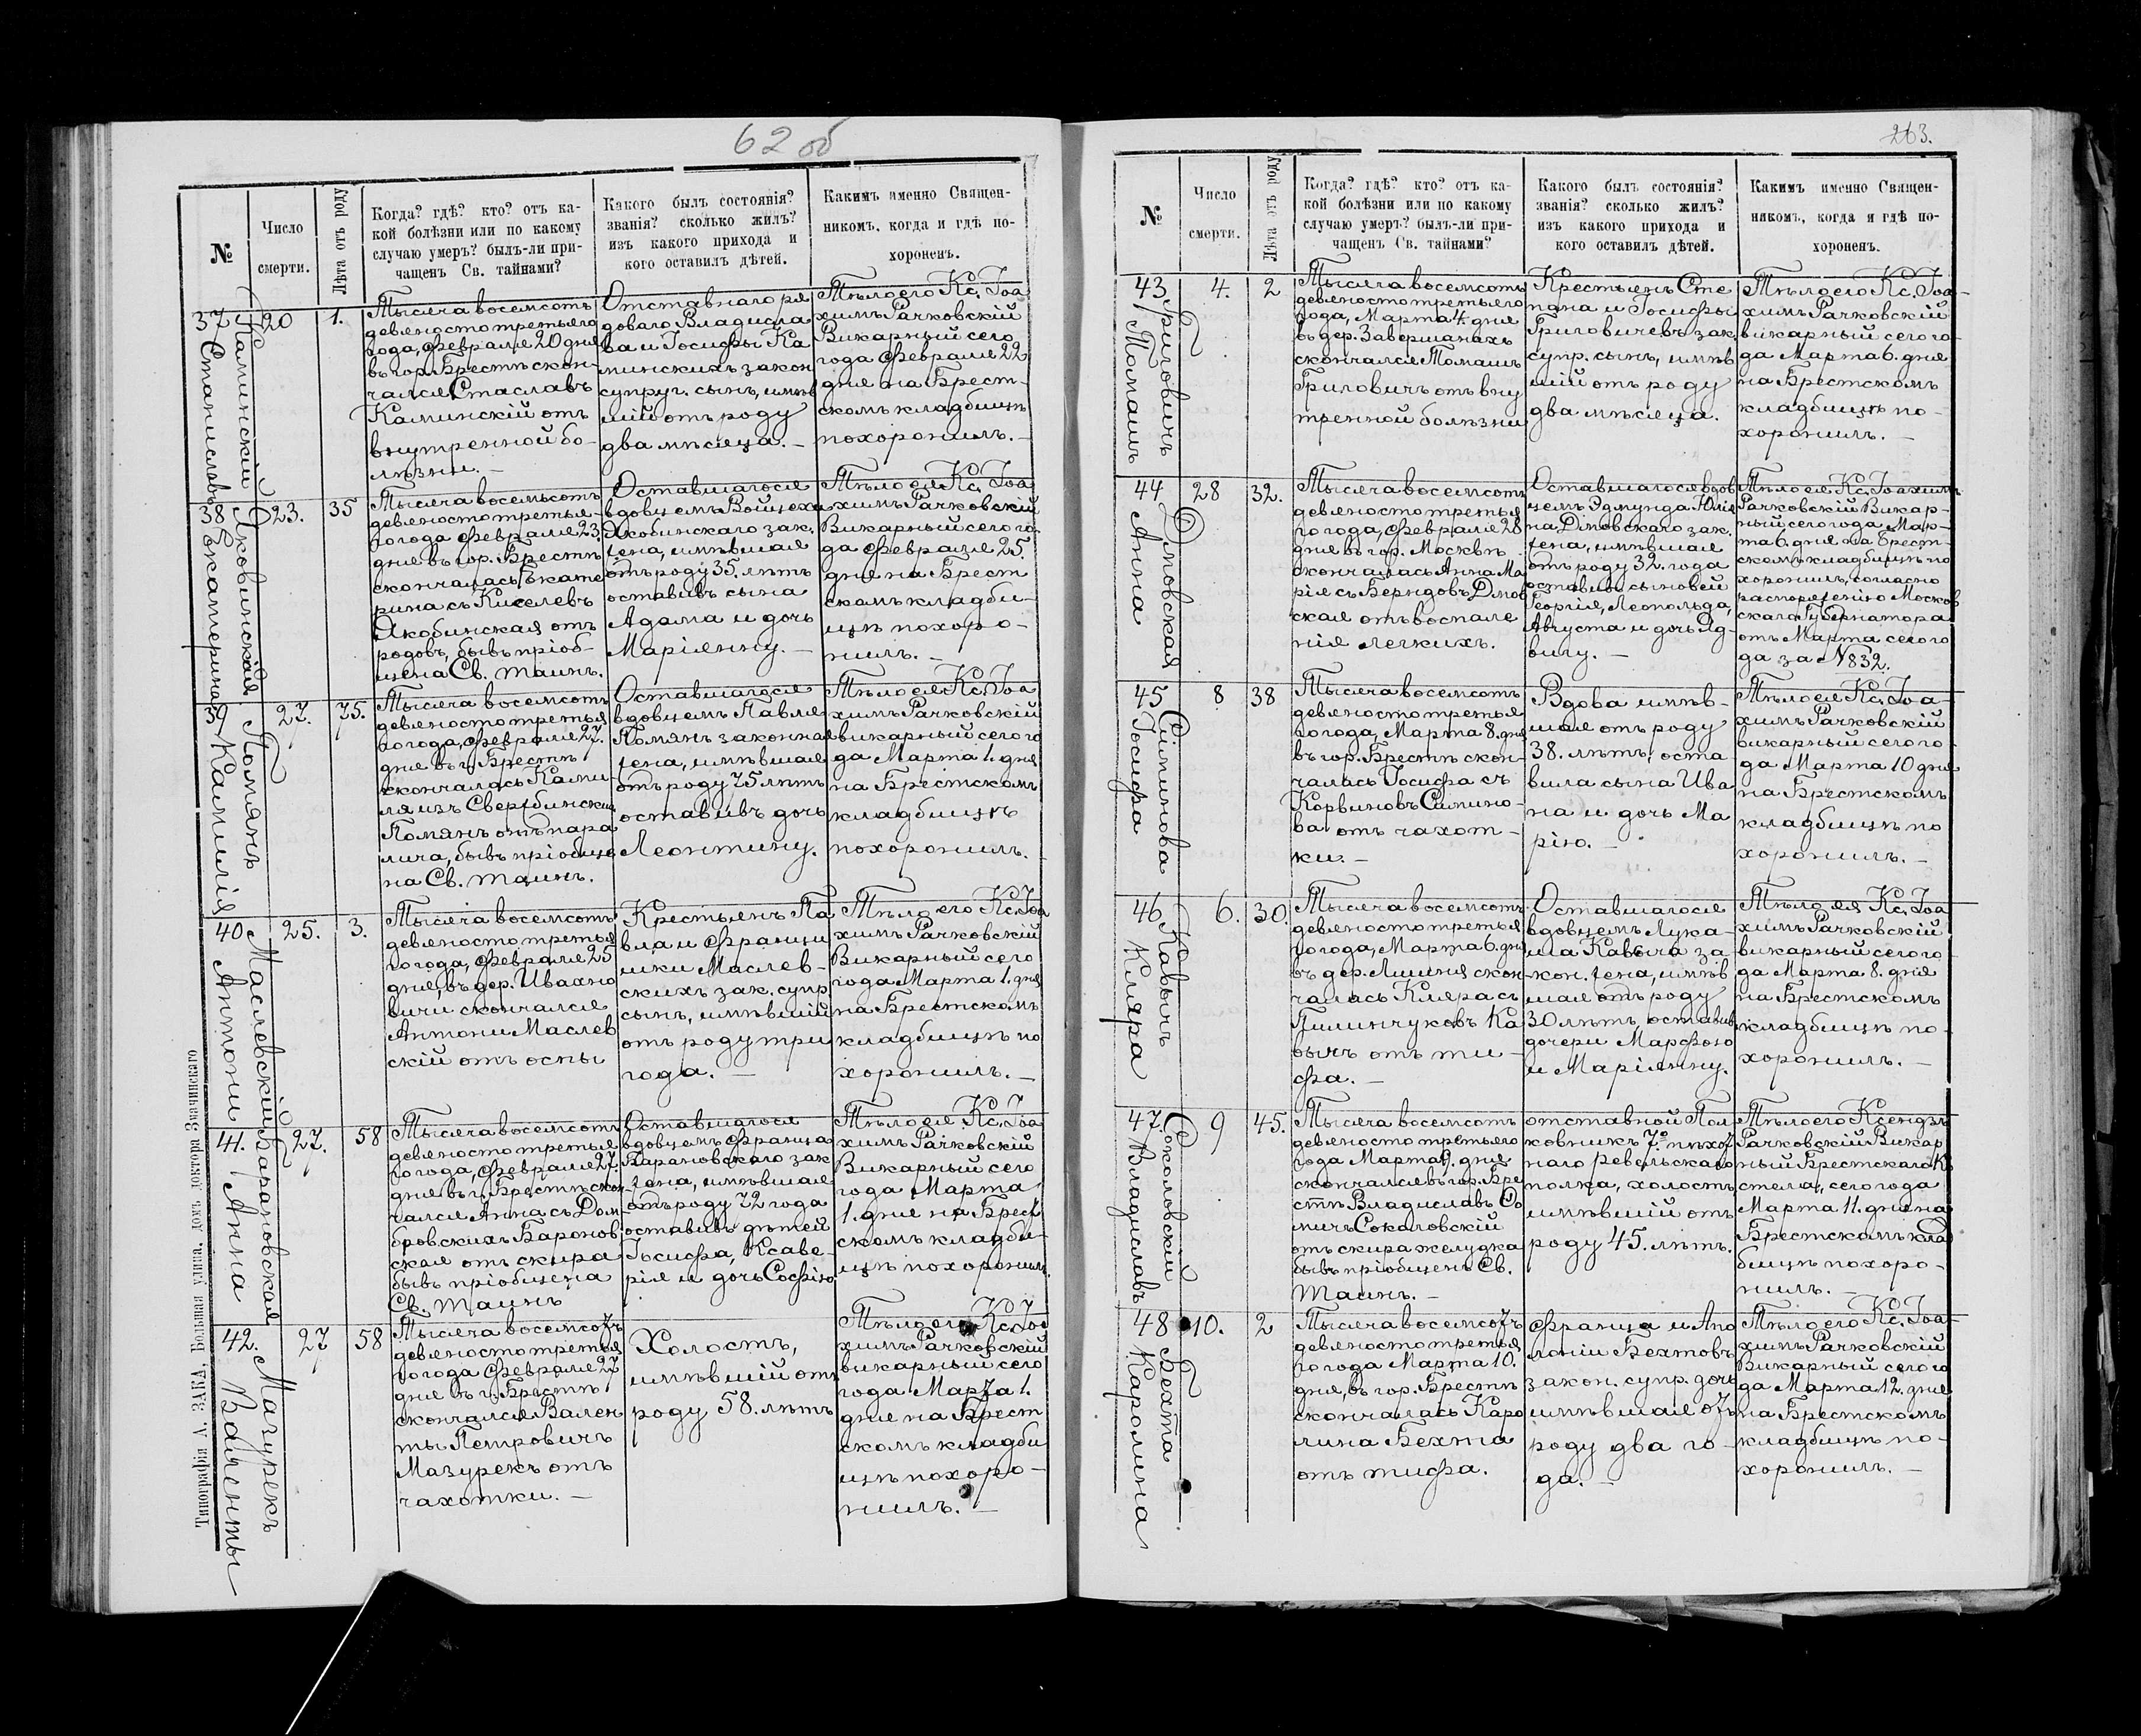 62 об
№
Число
смерти.
Лѣта отъ роду
Когда? гдѣ? кто? отъ ка-
кой болѣзни или по какому
случаю умеръ? былъ-ли при-
чащенъ Св. тайнами?
Какого былъ состоянія?
званія? сколько жилъ?
изъ какого прихода и
кого оставилъ дѣтей.
Какимъ именно Священ-
никомъ, когда и гдѣ по-
хороненъ.
37
Каминскій
Станиславъ
20
1.
Тысяча восемсотъ
девяносто третьяго
года, февраля 20 дня
въ гор. Брестѣ скон-
чался Стаславъ
Каминскій отъ
внутренной бо-
лѣзни. —
Отставнаго ря
доваго Владисла
ва и Іосифы Ка
минскихъ закон
супруг. сынъ, имѣв
шій отъ роду
два мѣсяца. —
Тѣло его Кс. Іоа
химъ Рачковскій
Викарный сего
года февраля 22
дня на Брест-
скомъ кладбищѣ
похоронилъ. —
38
Яковинская
Екатерина
23.
35
Тысяча восемьсотъ
девяносто третья-
го года февраля 23
дня въ гор. Брестѣ
скончалась Екате
рина съ Киселевъ
Якобинская отъ
родовъ, бывъ пріоб-
щена Св. таинъ.
Оставшагося
вдовцемъ Войцеха
Якобинскаго зак.
жена, имѣвшая
отъ роду 35. лѣтъ
оставивъ сына
Адама и дочь
Маріянну. —
Тѣло ея Кс. Іоа
химъ Рачковскій
Викарный сего го
да февраля 25.
дня на Брест
скомъ кладби-
щѣ похоро-
нилъ. —
39
Помянъ
Камилія
27.
75.
Тысяча восемсотъ
девяносто третья
го года, февраля 27.
дня въ г. Брестѣ
скончалась Ками
ля изъ Свержбинских
Помянъ отъ пара
лича, бывъ пріобще
на Св. таинъ.
Оставшагося
вдовцемъ Павла
Помянъ законная
жена, имѣвшая
отъ роду 75 лѣтъ
оставивъ дочь
Леонтину.
Тѣло ея Кс. Іоа
химъ Рачковскій
викарный сего го
да Марта 1. дня
на Брестскомъ
кладбищѣ
похоронилъ. —
40
Маслевскій
Антони
25.
3.
Тысяча восемсотъ
девяносто третья
го года, февраля 25
дня, въ дер. Ивахно
вичи скончался
Антони Маслев
скій отъ оспы
Крестьянъ Па
вла и Франци
шки Маслев-
скихъ зак. супр
сынъ, имѣвшій
отъ роду три
года. —
Тѣло его Кс. Іоа
химъ Рачковскій
Викарный сего
года Марта 1. дня
на Брестскомъ
кладбищѣ по
хоронилъ. —
41.
Барановская
Анна
27.
58
Тысяча восемсотъ
девяносто третья
го года, февраля 27.
дня въ г. Брестѣ скон
чалсяАнна съ Дом
бровскихъ Баронов
ская отъ скира
бывъ пріобщена
Св. таинъ
Оставшагося
вдовцемъ Франца
Барановскаго зак
жена, имѣвшая
отъ роду 72 года
оставивъ дѣтей
Іосифа, Ксаве-
рія и дочь Софію
Тѣло ея Кс. Іоа
химъ Рачковскій
Викарный сего
года Марта
1. дня на Брест
скомъ кладби-
щѣ похоронилъ.
42.
Мазурекъ
Валенты
27
58
Тысяча восемсотъ
девяносто третья
го года февраля 27
дня въ г. Брестѣ
скончался Вален
ты Петровичъ
Мазурекъ отъ
чахотки. —
Холостъ,
имѣвшій отъ
роду 58. лѣтъ
Тѣло его Кс. Іоа
химъ Рачковскій
викарный сего
года Марта 1.
дня на Брест
скомъ кладби
щѣ похоро-
нилъ. —
Типографія А. ЗАКА, Большая улица, домъ доктора Значинскаго
263.
№
Число
смерти.
Лѣта отъ роду
Когда? гдѣ? кто? отъ ка-
кой болѣзни или по какому
случаю умеръ? былъ-ли при-
чащенъ Св. тайнами?
Какого былъ состоянія?
званія? сколько жилъ?
изъ какого прихода и
кого оставилъ дѣтей.
Какимъ именно Священ-
никомъ, когда и гдѣ по-
хороненъ.
43
Григовичъ
Томашъ
4.
2
Тысяча восемсотъ
девяносто третьяго
года, Марта 4. дня
въ дер. Завершанахъ
скончался Томашъ
Григовичъ отъ вну
тренной болѣзни
Крестьянъ Сте
пана и Іосифы
Григовичевъ зак.
супр. сынъ, имѣв
шій отъ роду
два мѣсяца.
Тѣло его Кс. Іоа-
химъ Рачковскій
викарный сего го-
да Марта 6. дня
на Брестскомъ
кладбищѣ по-
хоронилъ. —
44
Дмовская
Анна
28
32.
Тысяча восемсотъ
девяносто третья
го года, февраля 28
дня въ гор. Москвѣ
скончалась Анна Ма
рія съ Берндовъ Дмов
ская отъ воспале
нія легкихъ.
Оставшагося вдов
цемъ Эдмунда Юлія
на Дмовскаго зак.
жена, имѣвшая
отъ роду 32. года
оставивъ сыновей
Георгія, Леопольда,
Августа и дочь Яд-
вигу. —
Тѣло ея Кс. Іоахимъ
Рачковскій Викар-
ный сего года Мар-
та 6. дня на Брест-
скомъ кладбищѣ по
хоронилъ, согласно
распоряженію Москов
скаго Губернатора
отъ Марта сего го
да за №832.
45
Сипинова
Іосифа
8
38
Тысяча восемсотъ
девяносто третья
го года, Марта 8. дня
въ гор. Брестѣ скон-
чалась Іосифа съ
Корвиновъ Сипино-
ва отъ чахот-
ки. —
Вдова имѣв-
шая отъ роду
38. лѣтъ, оста
вила сына Ива
на и дочь Ма
рію. —
Тѣло ея Кс. Іоа-
химъ Рачковскій
викарный сего го-
да Марта 10 дня
на Брестскомъ
кладбищѣ по
хоронилъ. —
46
Кавычъ
Кляра
6.
30.
Тысяча восемсотъ
девяносто третья
го года, Марта 6. дня
въ дер. Лищицѣ скон
чалась Кляра съ
Пилинчуковъ Ка
вычъ отъ ти-
фа. —
Оставшагося
вдовцемъ Лука-
ша Кавыча за-
кон. жена, имѣв
шая отъ роду
30 лѣтъ, оставивъ
дочери Марфою
и Маріянну.
Тѣло ея Кс. Іоа
химъ Рачковскій
викарный сего го-
да Марта 8. дня
на Брестскомъ
кладбищѣ по-
хоронилъ. —
47.
Соколовскій
Владиславъ
9
45.
Тысяча восемсотъ
девяносто третьяго
года Марта 9. дня
скончался въ гор. Бре
стѣ Владиславъ Фо
мичъ Соколовскій
отъ скира желудка
бывъ пріобщенъ Св.
Таинъ. —
отставной Пол
ковникъ 7го пѣхот
наго Ревельскаго
полка, холостъ
имѣвшій отъ
роду 45. лѣтъ.
Тѣло его Ксендзъ
Рачковскій Викар
ный Брестскаго Ко
стела, сего года
Марта 11. дня на
Брестскомъ клад
бищѣ похоро-
нилъ. —
48
Бехта
Каролина
10.
2
Тысяча восемсотъ
девяносто третья
го года Марта 10.
дня, въ гор. Брестѣ
скончалась Каро
лина Бехта
отъ тифа.
Франца и Апо
лоніи Бехтовъ
закон. супр. дочь
имѣвшая отъ
роду два го-
да. —
Тѣло его Кс. Іоа-
химъ Рачковскій
Викарный сего го
да Марта 12. дня
на Брестскомъ
кладбищѣ по-
хоронилъ. —